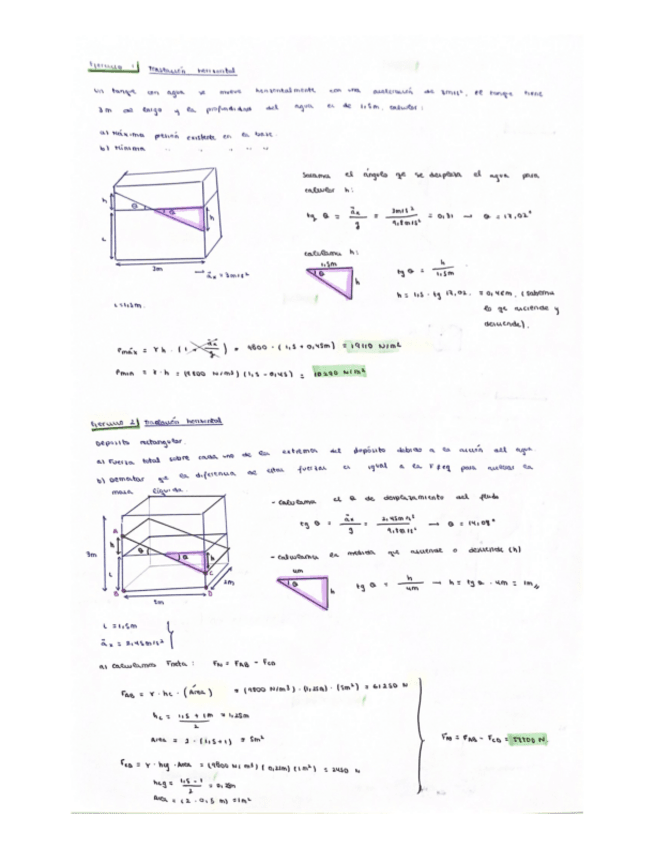 Ejercicio 1 Traslación horizontal
Un tanque con agua se mueve horizontalmente con una aceleración de 3m/s², el tanque tiene
3m de largo y la profundidad del agua es de 1,5m, calcular:
a) Máxima presión existente en la base.
b) Mínima " " " " "
Sacamos el ángulo qe se desplaza el agua para
calcular h:
tg θ = ax/g = 3m/s²/9,8m/s² = 0,31 → θ = 17,02°
calculamos h:
1,5m
θ
h
tg θ = h/1,5m
h = 1,5 · tg 17,02 = 0,45m. (sabemos
lo qe asciende y
desciende).
h
θ
θ
h
L
3m
→ ax = 3m/s²
L = 1,5m.
Pmáx = γ h · (1 + ax/g) = 9800 · (1,5 + 0,45m) = 19110 N/m²
Pmin = γ · h = (9800 N/m³) (1,5 - 0,45) = 10290 N/m²
Ejercicio 2 Traslación horizontal
Depósito rectangular.
a) Fuerza total sobre cada uno de los extremos del depósito debido a la acción del agua
b) Demostrar que la diferencia de estas fuerzas es igual a la F req para acelerar la
masa líquida.
- calculamos el θ de desplazamiento del fluido
tg θ = ax/g = 2,45m/s²/9,8m/s² → θ = 14,04°
- calculamos la medida que asciende o desciende (h)
4m
θ
h
tg θ = h/4m → h = tg θ · 4m = 1m
A
h
3m
θ
θ
h
C
L
B
D
2m
8m
L = 1,5m
ax = 2,45m/s²
a) calculamos Fneta: FN = FAB - FCD
FAB = γ · hc · (área) = (9800 N/m³) · (1,25m) · (5m²) = 61250 N
hc = 1,5 + 1m/2 = 1,25m
área = 2 · (1,5+1) = 5m²
FCD = γ · hcg · Area = (9800 N/m³) (0,25m) (1m²) = 2450 N
hcg = 1,5 - 1/2 = 0,25m
área = (2 · 0,5 m) = 1m²
FN = FAB - FCD = 58800 N.